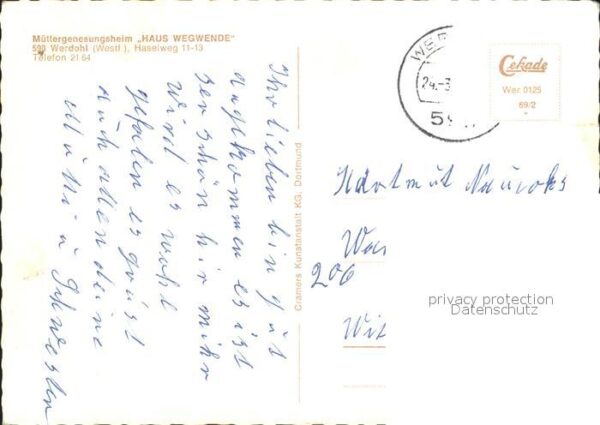 Müttergenesungsheim „HAUS WEGWENDE"
598 Werdohl (Westf.), Haselweg 11-13
Telefon 21 64
Ihr lieben bin gut
angekommen es ist
ser schön hir mihr
wird es wohl
gefalen es grüst
auch allen deine
Mutti u Schwester
Cramers Kunstanstalt KG. Dortmund
WER
24.-3
59
Cekade
Wer 0125
69/2
Hartmut
Wer
206
Wit
privacy protection
Datenschutz